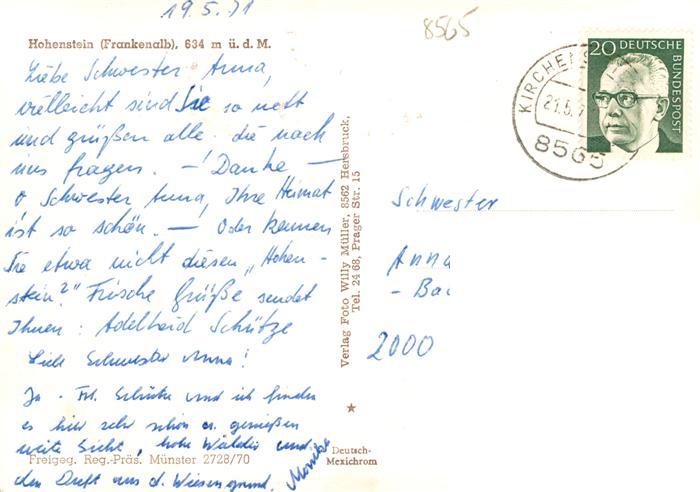 19.5.71
8565
Hohenstein (Frankenalb), 634 m ü. d. M.
Liebe Schwester Anna,
vielleicht sind Sie so nett
und grüßen alle die nach
uns fragen. – Danke –
o Schwester Anna, Ihre Heimat
ist so schön. – Oder kennen
Sie etwa nicht diesen „Hohen-
stein?" Frische Grüße sendet
Ihnen: Adelheid Schütze
Liebe Schwester Anna!
Ja - Frl. Schütze und ich finden
es hier sehr schön u. genießen
weite Sicht, hohe Wälder und
den Duft aus d. Wiesengrund. Monika
Freigeg. Reg.-Präs. Münster 2728/70
Verlag Foto Willy Müller, 8562 Hersbruck,
Tel. 24 68, Prager Str. 15
Deutsch-
Mexichrom
KIRCHENS
21.5.7
8565
20 DEUTSCHE
BUNDESPOST
Schwester
Anna
2000